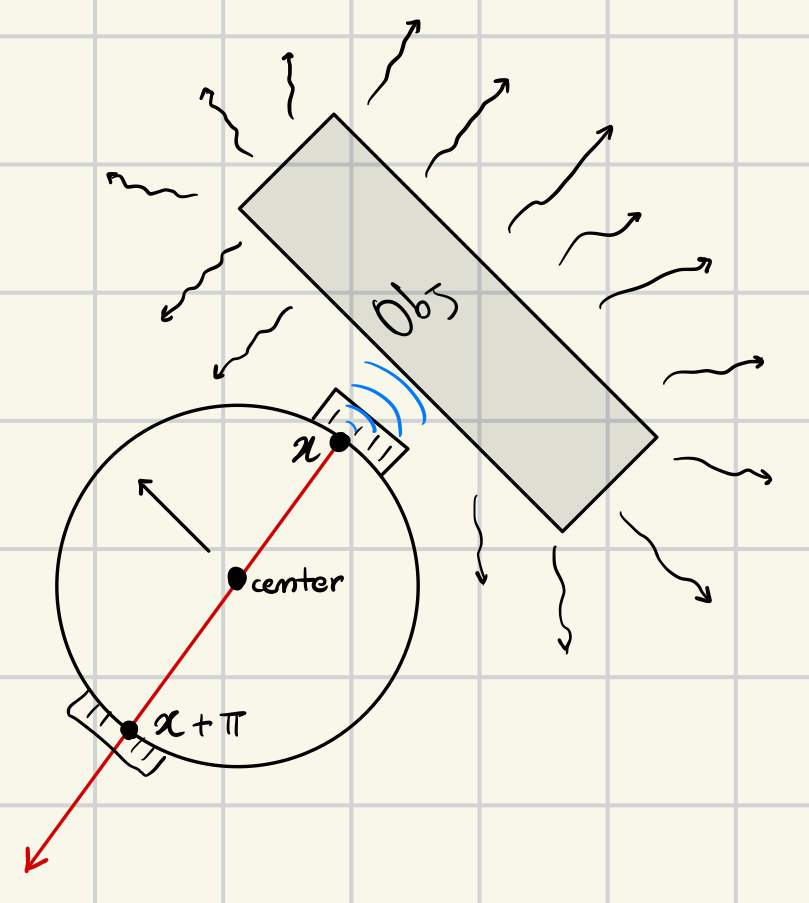 Obj
x
center
x + π